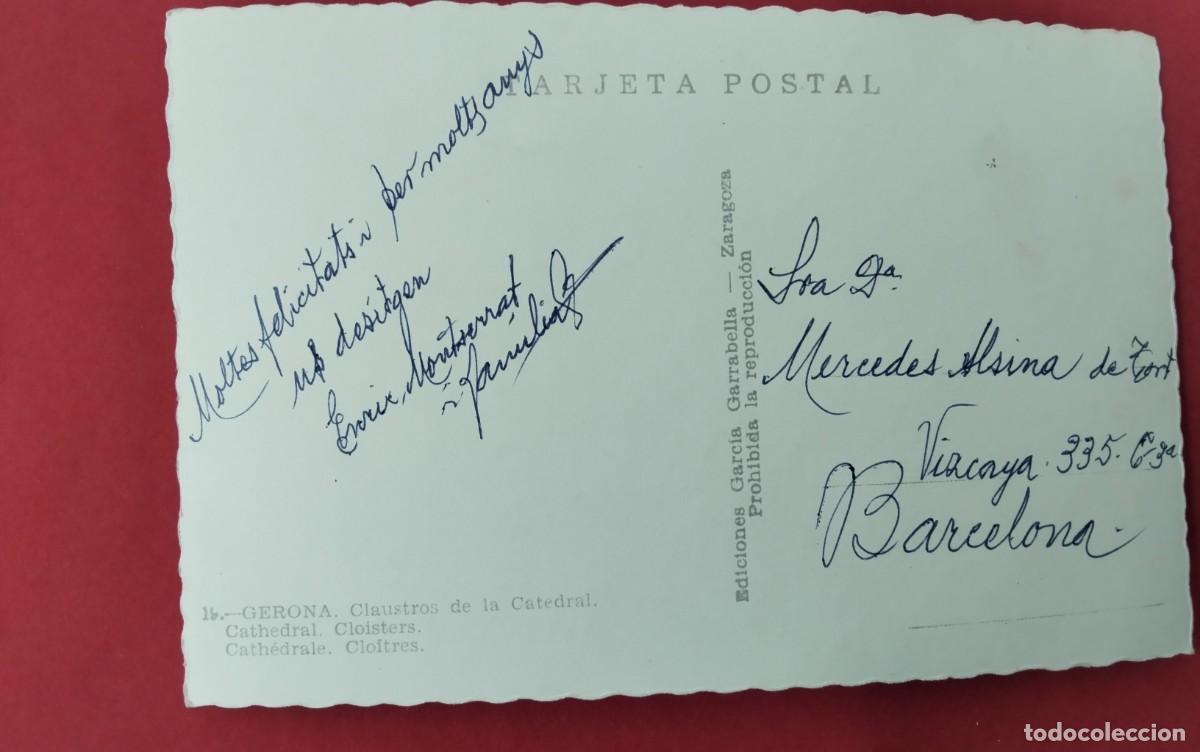 TARJETA POSTAL
Moltes felicitats i per molts anys
us desitgen
Enric, Montserrat
i família
Ediciones García Garrabella — Zaragoza
Prohibida la reproducción
Sra Dª
Mercedes Alsina de Tort
Vizcaya 335
Barcelona.
GERONA. Claustros de la Catedral.
Cathedral. Cloisters.
Cathédrale. Cloîtres.
todocoleccion